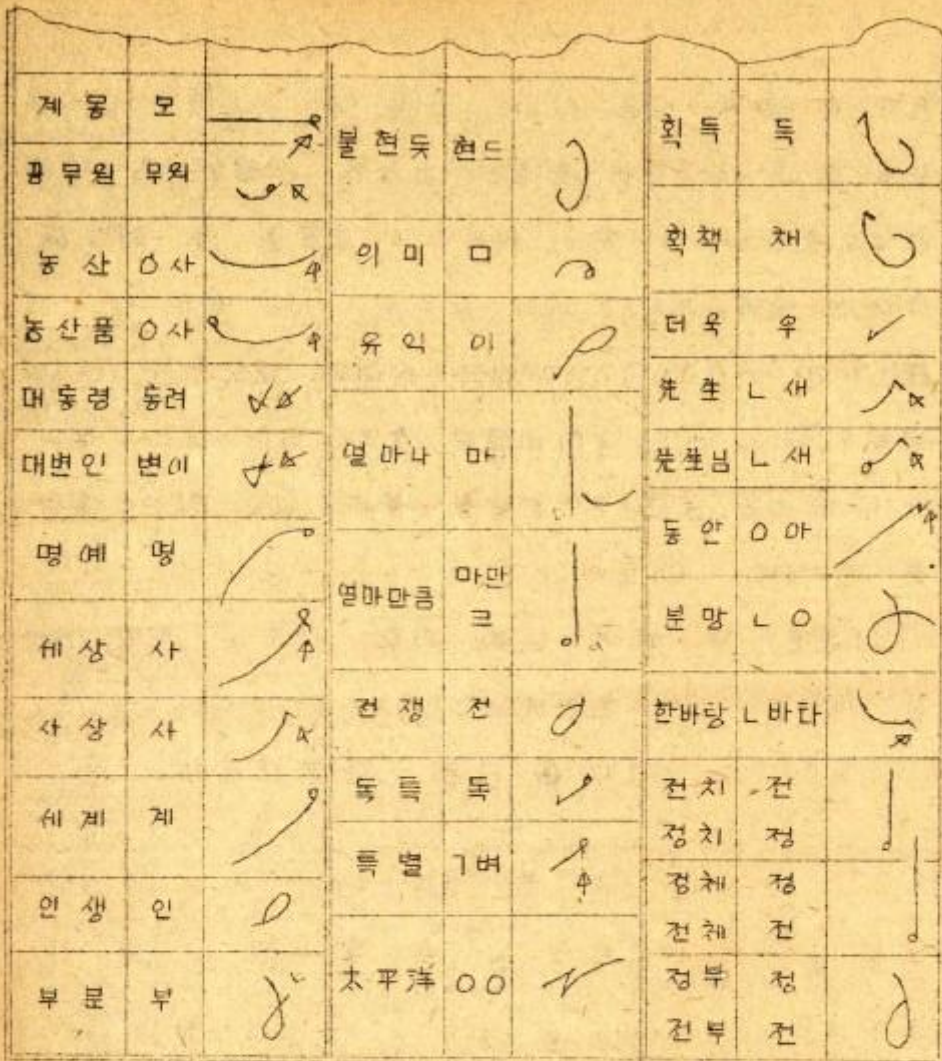 계몽 모
공무원 무워
농산 ㅇ사
농산품 ㅇ사
대통령 통려
대변인 변이
명예 명
세상 사
사상 사
세계 계
인생 인
부문 부
불현듯 현드
의미 ㅁ
유익 이
얼마나 마
얼마만큼 마만
크
전쟁 전
독특 독
특별 ㄱ벼
太平洋 ㅇㅇ
획득 득
획책 채
더욱 우
先生 ㄴ새
先生님 ㄴ새
동안 ㅇ아
분망 ㄴㅇ
한바탕 ㄴ바타
전치 전
정치 정
정체 정
전체 전
정부 정
전부 전